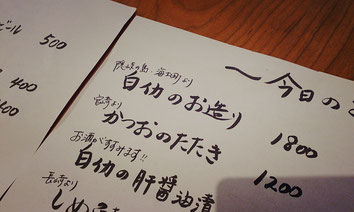 ビール 500
400
400
〜今日の
隠岐の島・海士町より
白イカのお造り 1800
宮崎より
かつおのたたき 1200
お酒がすすみます!!
白イカの肝醤油漬
長崎より
しめ